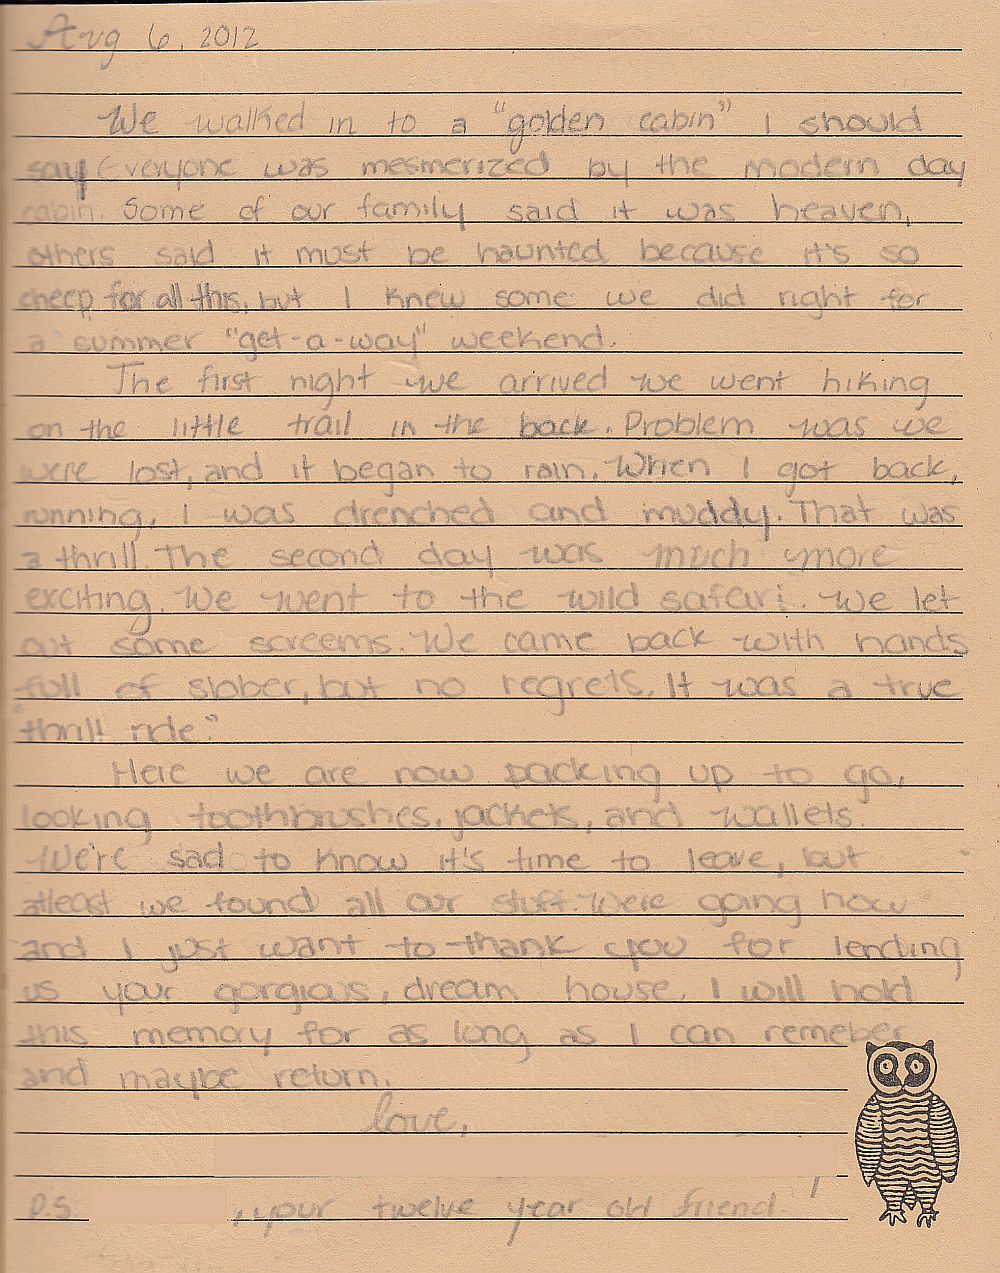 Aug 6, 2012
We walked in to a "golden cabin" I should
say Everyone was mesmerized by the modern day
cabin. Some of our family said it was heaven,
others said it must be haunted because it's so
cheep for all this, but I knew some we did right for
a summer "get-a-way" weekend.
The first night we arrived we went hiking
on the little trail in the back. Problem was we
were lost, and it began to rain. When I got back,
running, I was drenched and muddy. That was
a thrill. The second day was much more
exciting. We went to the wild safari. We let
out some screems. We came back with hands
full of slober, but no regrets. It was a true
"thrill ride."
Here we are now packing up to go,
looking toothbrushes, jackets, and wallets.
We're sad to know it's time to leave, but
atleast we found all our stuff. Were going now
and I just want to thank you for lending
us your gorgious, dream house. I will hold
this memory for as long as I can remeber
and maybe return.
love,
P.S. , your twelve year old friend